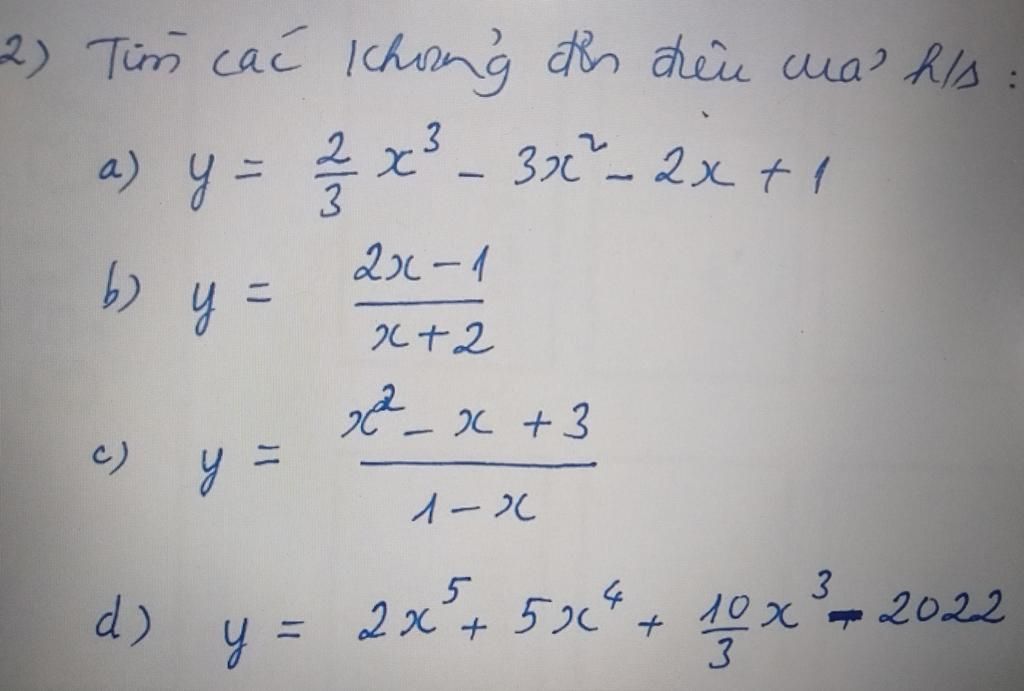 2) Tìm các khoảng đơn điệu của h/s :
a) y = 2/3 x³ - 3x² - 2x + 1
b) y = (2x - 1)/(x + 2)
c) y = (x² - x + 3)/(1 - x)
d) y = 2x⁵ + 5x⁴ + 10/3 x³ - 2022